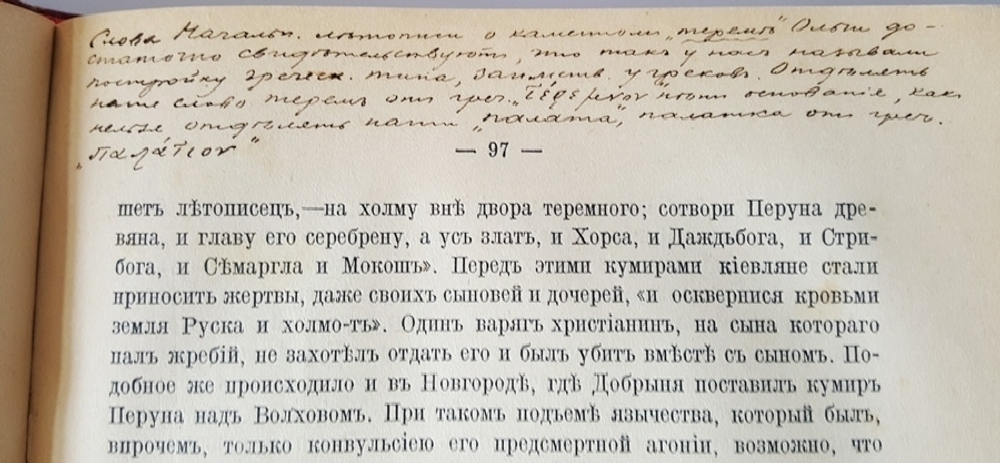 Слова Начальн. лѣтописи о каменномъ „теремѣ" Ольги до-
статочно свидѣтельствуютъ, что такъ у насъ называли
постройку греческ. типа, заимств. у грековъ. Отдѣлять
наше слово теремъ отъ греч. „τέρεμνον" нѣтъ основанія, какъ
нельзя отдѣлять наши „палата", палатка отъ греч.
„παλάτιον"
— 97 —
шетъ лѣтописецъ,—на холму внѣ двора теремного; сотвори Перуна дре-
вяна, и главу его серебрену, а усъ златъ, и Хорса, и Даждьбога, и Стри-
бога, и Сѣмаргла и Мокошъ». Передъ этими кумирами кіевляне стали
приносить жертвы, даже своихъ сыновей и дочерей, «и осквернися кровьми
земля Руска и холмо-тъ». Одинъ варягъ христіанинъ, на сына котораго
палъ жребій, не захотѣлъ отдать его и былъ убитъ вмѣстѣ съ сыномъ. По-
добное же происходило и въ Новгородѣ, гдѣ Добрыня поставилъ кумиръ
Перуна надъ Волховомъ. При такомъ подъемѣ язычества, который былъ,
впрочемъ, только конвульсіею его предсмертной агоніи, возможно, что